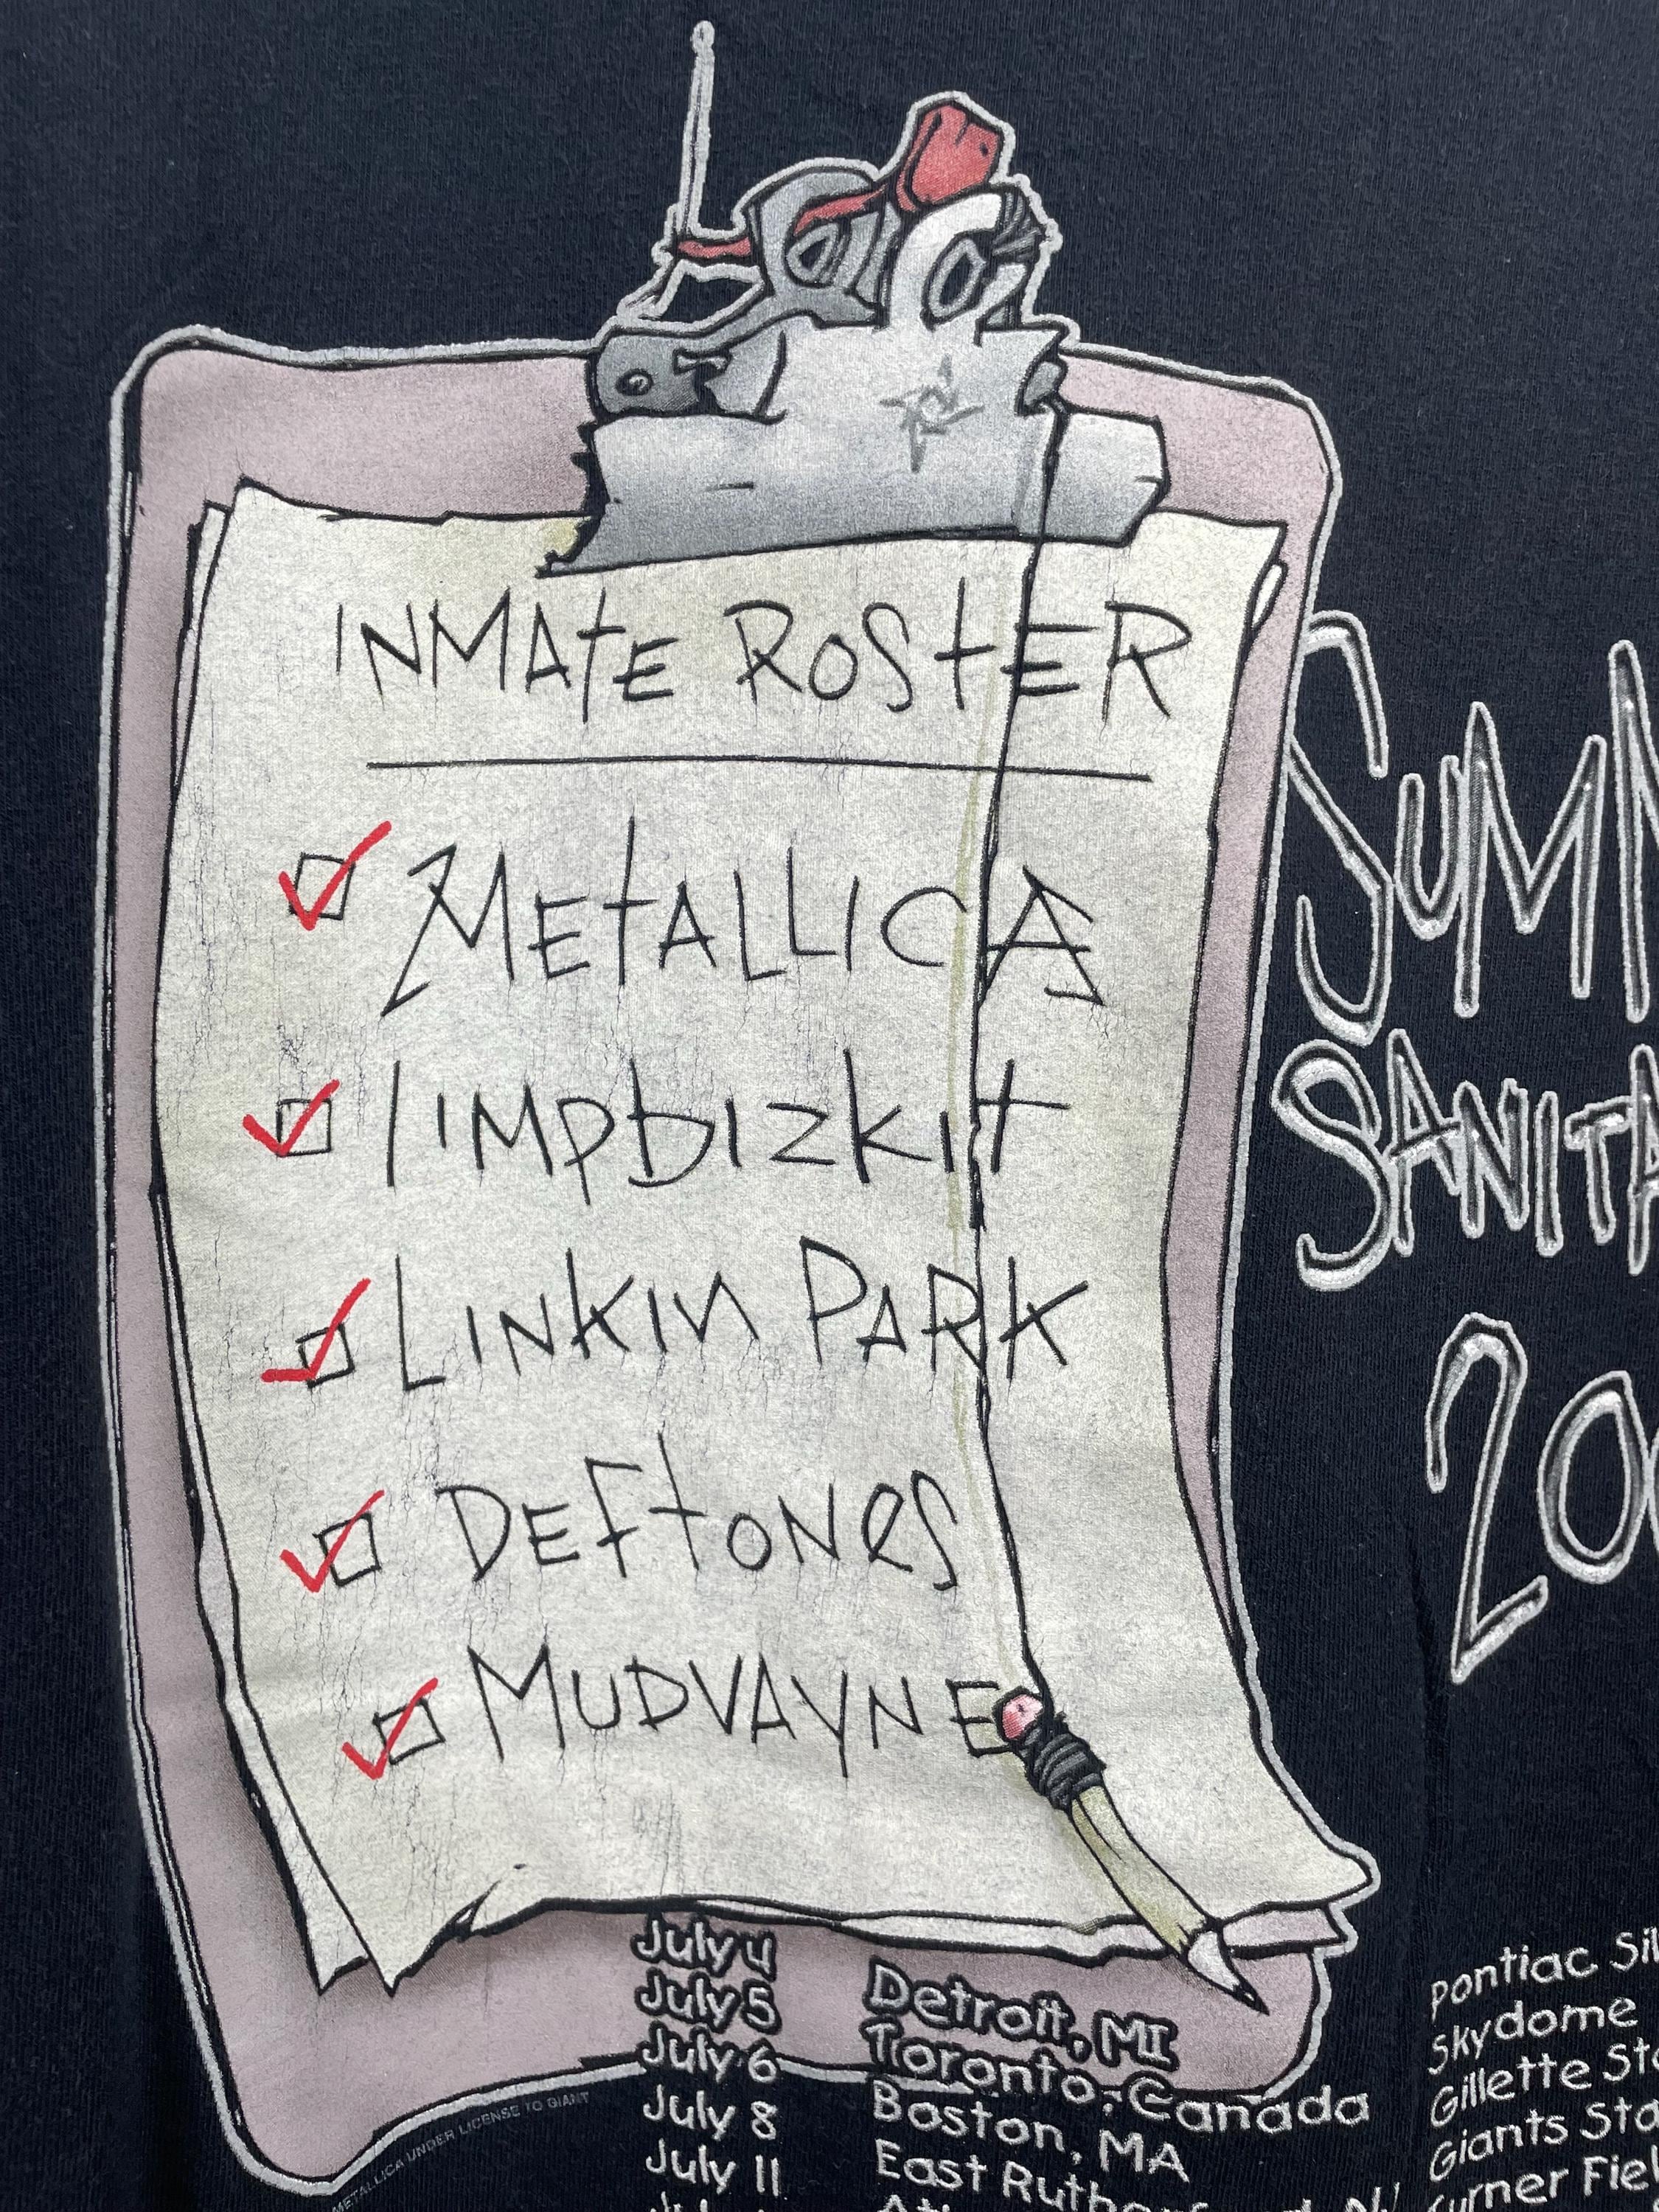 INMATE ROSTER
METALLICA
limpbizkit
LINKIN PARK
DEFTONES
MUDVAYNE
SUMM
SANITA
200
July 4 Detroit, MI Pontiac Sil
July 5 Toronto, Canada Skydome
July 6 Boston, MA Gillette Sta
July 8 East Rutherford, NJ Giants Sta
July 11 Turner Fiel
METALLICA UNDER LICENSE TO GIANT